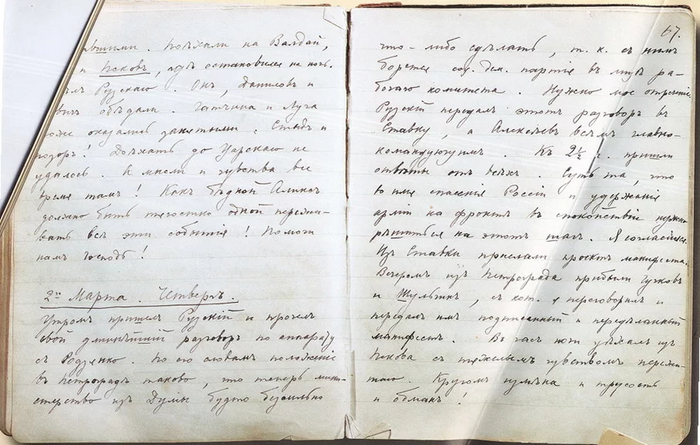 вшими. Поѣхали на Валдай,
и Псковъ, гдѣ остановился на ночь.
Рузскаго. Онъ, Даниловъ и
обѣдали. Гатчина и Луга
оже оказались занятыми. Стыдъ и
позоръ! Доѣхать до Царскаго не
удалось. А мысли и чувства все
время тамъ! Какъ бѣдной Аликсъ
должно быть тягостно одной пережи-
вать всѣ эти событія! Помоги
намъ Господь!
2го Марта. Четвергъ.
Утромъ пришелъ Рузскій и прочелъ
свой длиннѣйшій разговоръ по аппарату
съ Родзянко. По его словамъ положеніе
въ Петроградѣ таково, что теперь мини-
стерство изъ Думы будто безсильно
67.
что-либо сдѣлать, т. к. съ нимъ
борется соц. дек. партія въ лицѣ ра-
бочаго комитета. Нужно мое отреченіе
Рузскій передалъ этотъ разговоръ въ
Ставку, а Алексѣевъ всѣмъ главно-
командующимъ. Къ 2½ ч. пришли
отвѣты отъ всѣхъ. Суть та, что
во имя спасенія Россіи и удержанія
арміи на фронтѣ въ спокойствіи нужно
рѣшиться на этотъ шагъ. Я согласился
Изъ Ставки прислали проектъ манифеста.
Вечеромъ изъ Петрограда прибыли Гучковъ
и Шульгинъ, съ кот. я переговорилъ и
передалъ имъ подписанный и передѣланный
манифестъ. Въ часъ ночи уѣхалъ изъ
Пскова съ тяжелымъ чувствомъ пережи-
таго. Кругомъ измѣна и трусость
и обманъ!